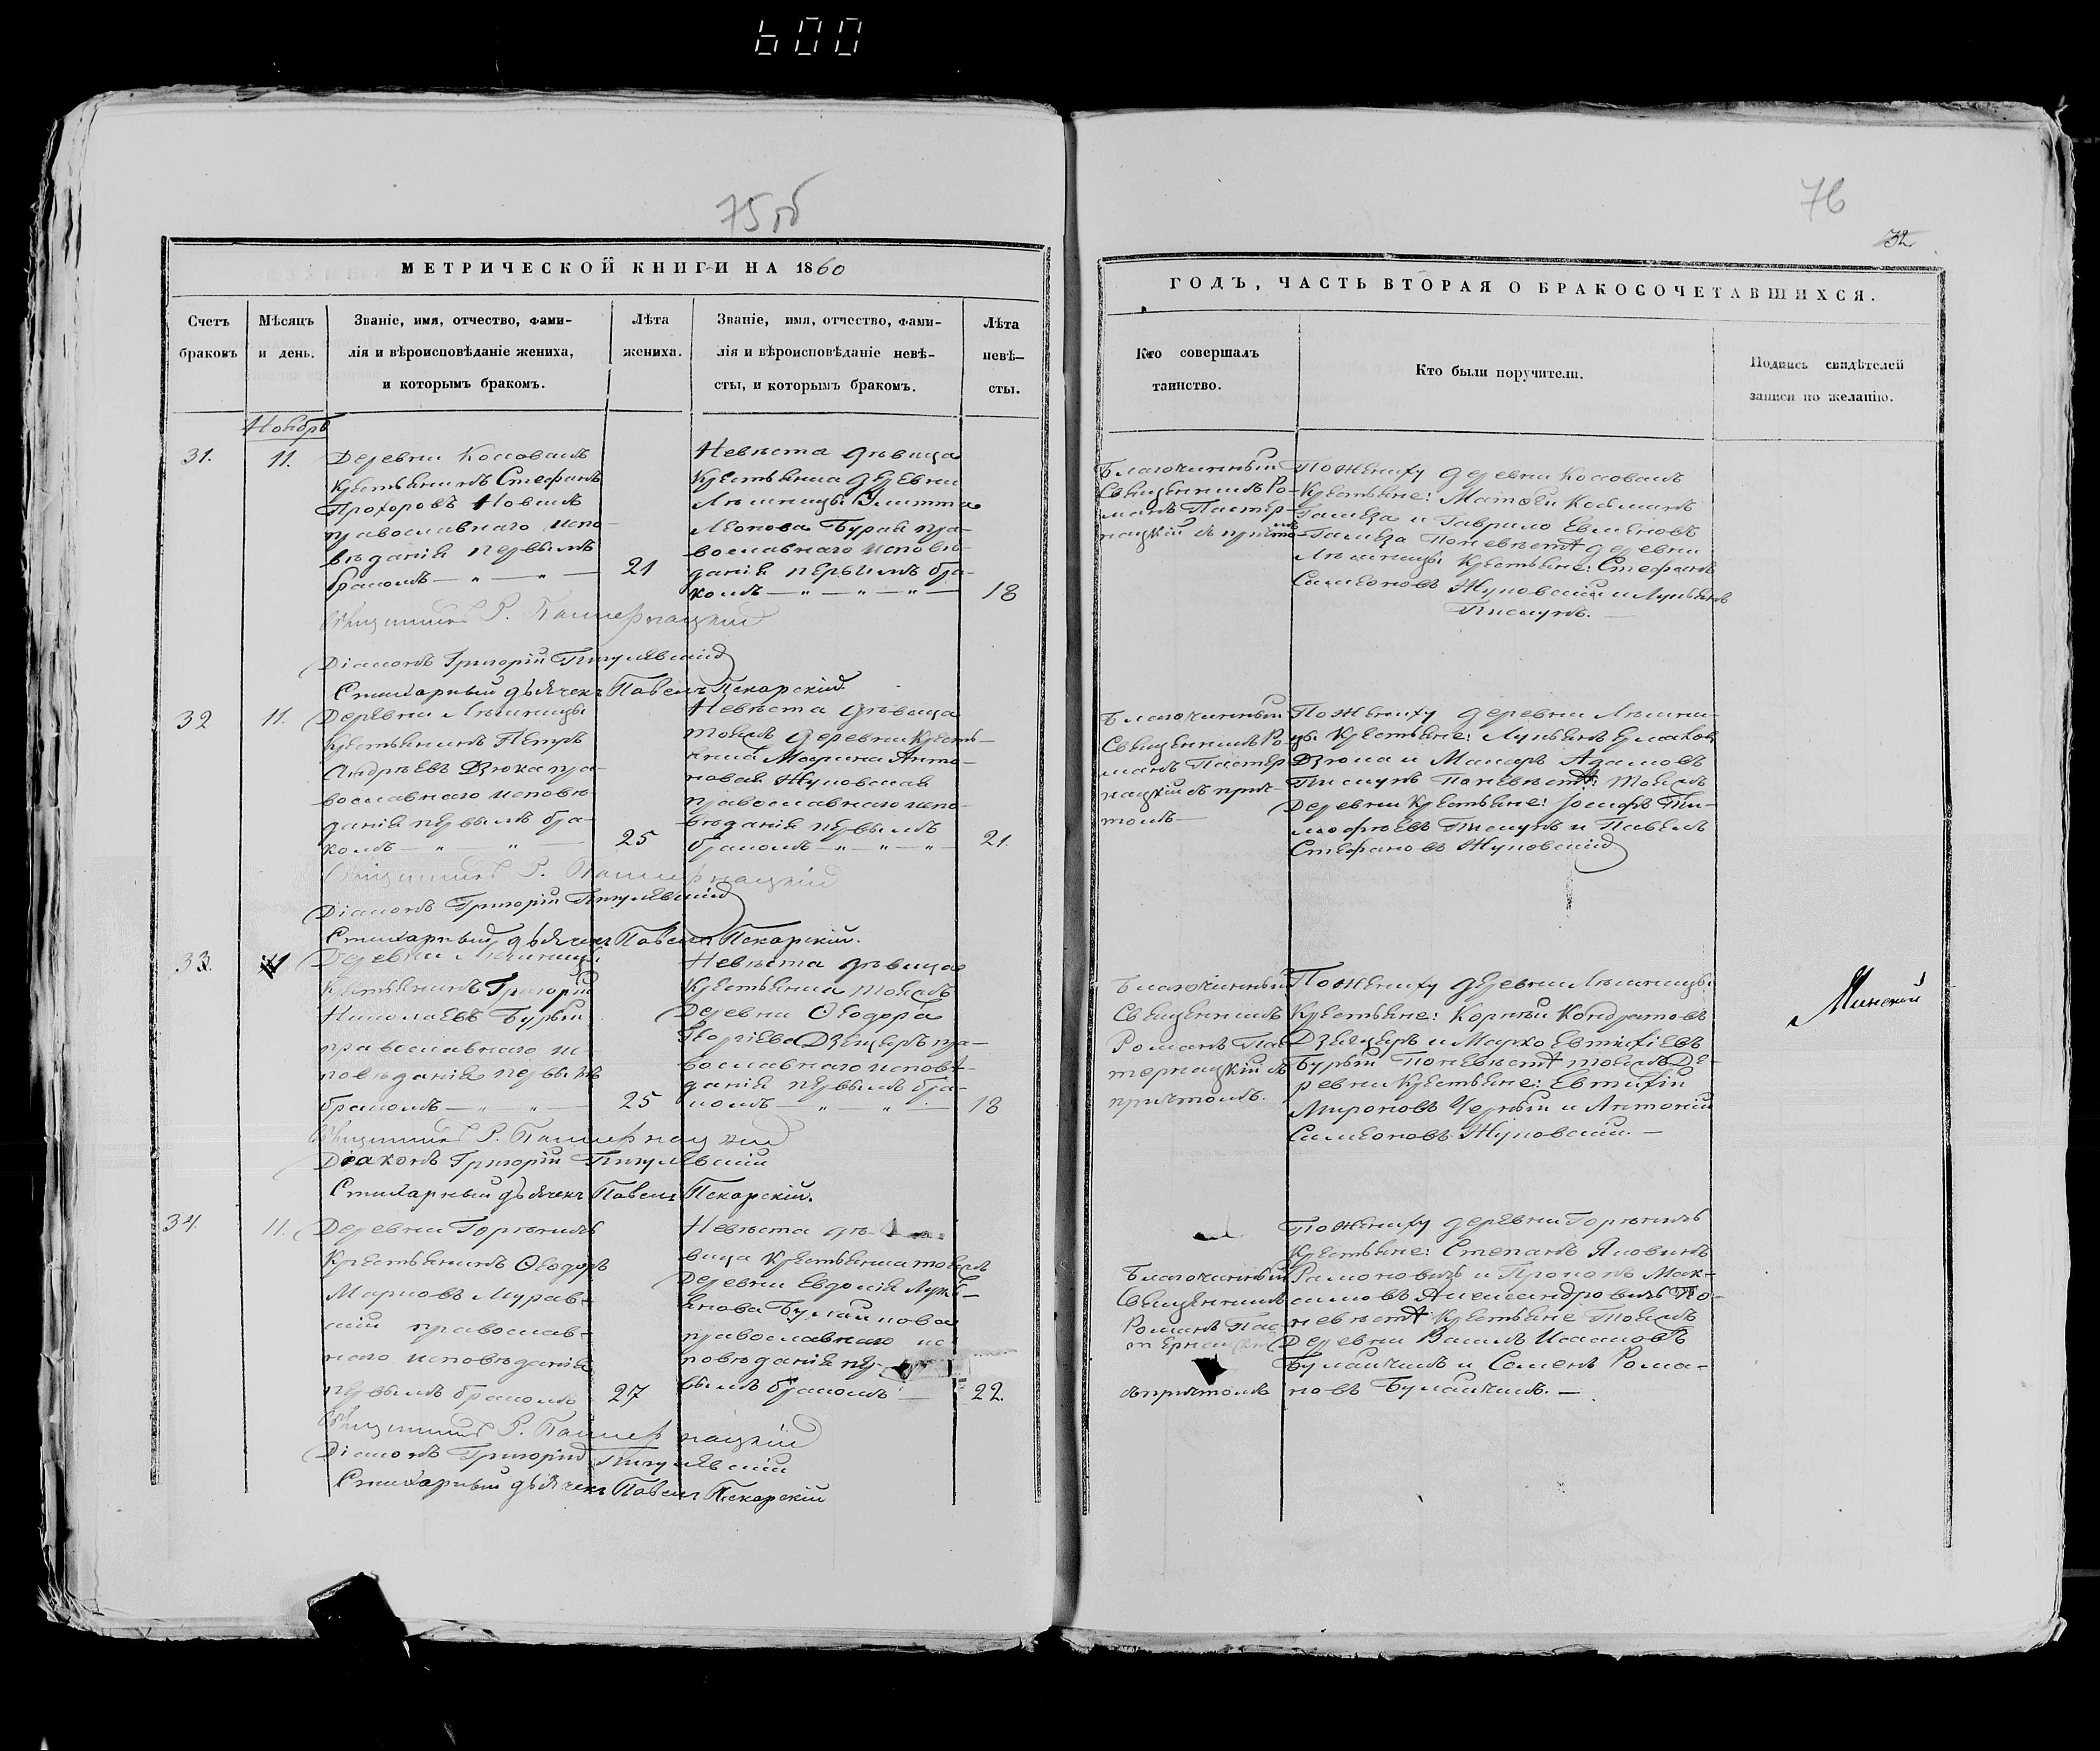 600
75об
76
32
МЕТРИЧЕСКОЙ КНИГИ НА 1860
Счетъ браковъ
Мѣсяцъ и день.
Званіе, имя, отчество, фами-
лія и вѣроисповѣданіе жениха,
и которымъ бракомъ.
Лѣта жениха.
Званіе, имя, отчество, фами-
лія и вѣроисповѣданіе невѣ-
сты, и которымъ бракомъ.
Лѣта невѣ-
сты.
ГОДЪ, ЧАСТЬ ВТОРАЯ О БРАКОСОЧЕТАВШИХСЯ.
Кто совершалъ
таинство.
Кто были поручители.
Подпись свидѣтелей
записи по желанію.
Ноябрь
31.
11.
Деревни Коссовакъ
Крестьянинъ Стефанъ
Прохоровъ Новикъ
православнаго испо-
вѣданія первымъ
бракомъ
21
Невѣста дѣвица
Крестьянка деревни
Леонова Бурая пра-
вославнаго исповѣ-
данія первымъ бра-
комъ
18
Благочинный
Священникъ Ро-
манъ Пастер-
нацкій съ причто-
мъ
По жениху деревни Коссовакъ
Крестьяне: Матѳей Косьмовъ
Гализа и Гаврило
Гализа по невѣстѣ деревни
Крестьяне: Стефанъ
Симеоновъ Жуковскій и Лукьянъ
Пискунъ.
Священникъ Р. Пастернацкій
Діаконъ Григорій Пигулевскій
Стихарный дьячекъ Павелъ Пекарскій.
32
11.
Деревни
Крестьянинъ Петръ
Андреевъ Дзюка пра-
вославнаго исповѣ-
данія первымъ бра-
комъ
25
Невѣста дѣвица
тоежъ деревни Кресть-
янка Марина Анто-
новая Жуковская
православнаго испо-
вѣданія первымъ
бракомъ
21.
Благочинный
Священникъ Ро-
манъ Пастер
нацкій съ прич-
томъ
По жениху деревни
цы Крестьяне: Лукьянъ
Дзюка и Макаръ Адамовъ
Пискунъ по невѣстѣ: тоежъ
Деревни Крестьяне: Іосифъ Ти-
моѳеевъ Пискунъ и Павелъ
Стефановъ Жуковскій
Священникъ Р. Пастернацкій
Діаконъ Григорій Пигулевскій
Стихарный дьячекъ Павелъ Пекарскій.
33.
11
Деревни
Крестьянинъ Григорій
Николаевъ Бурый
православнаго ис-
повѣданія первымъ
бракомъ
25
Невѣста дѣвица
Крестьянка тоежъ
Деревни Ѳеодора
Георгіева Дзенцеръ пра-
вославнаго исповѣ-
данія первымъ бра-
комъ
18
Благочинный
Священникъ
Романъ Пас
тернацкій съ
причтомъ.
По жениху деревни
Крестьяне: Корнѣй Кондратовъ
Дзенцеръ и Марко Евтихіевъ
Бурый по невѣстѣ тоежъ Де-
ревни Крестьяне: Евтихій
Мироновъ Черный и Антоній
Симеоновъ Жуковскій.
Минскій
Священникъ Р. Пастернацкій
Діаконъ Григорій Пигулевскій
Стихарный дьячекъ Павелъ Пекарскій.
34.
11.
Деревни
Крестьянинъ Ѳеодоръ
Марковъ Мурав-
скій православ-
наго исповѣданія
первымъ бракомъ
27
Невѣста дѣ-
вица Крестьянка тоежъ
Деревни Евдокія Лукь-
янова
православнаго ис-
повѣданія пер-
вымъ бракомъ
22.
Благочинный
Священникъ
Романъ Пас
тернацкій
съ причтомъ
По жениху деревни
Крестьяне: Степанъ Яковлевъ
и Прокопъ Мак-
симовъ Александровичъ По-
невѣстѣ Крестьяне тоежъ
Деревни Василь Исааковъ
и Семенъ Рома-
новъ
Священникъ Р. Пастернацкій
Діаконъ Григорій Пигулевскій
Стихарный дьячекъ Павелъ Пекарскій